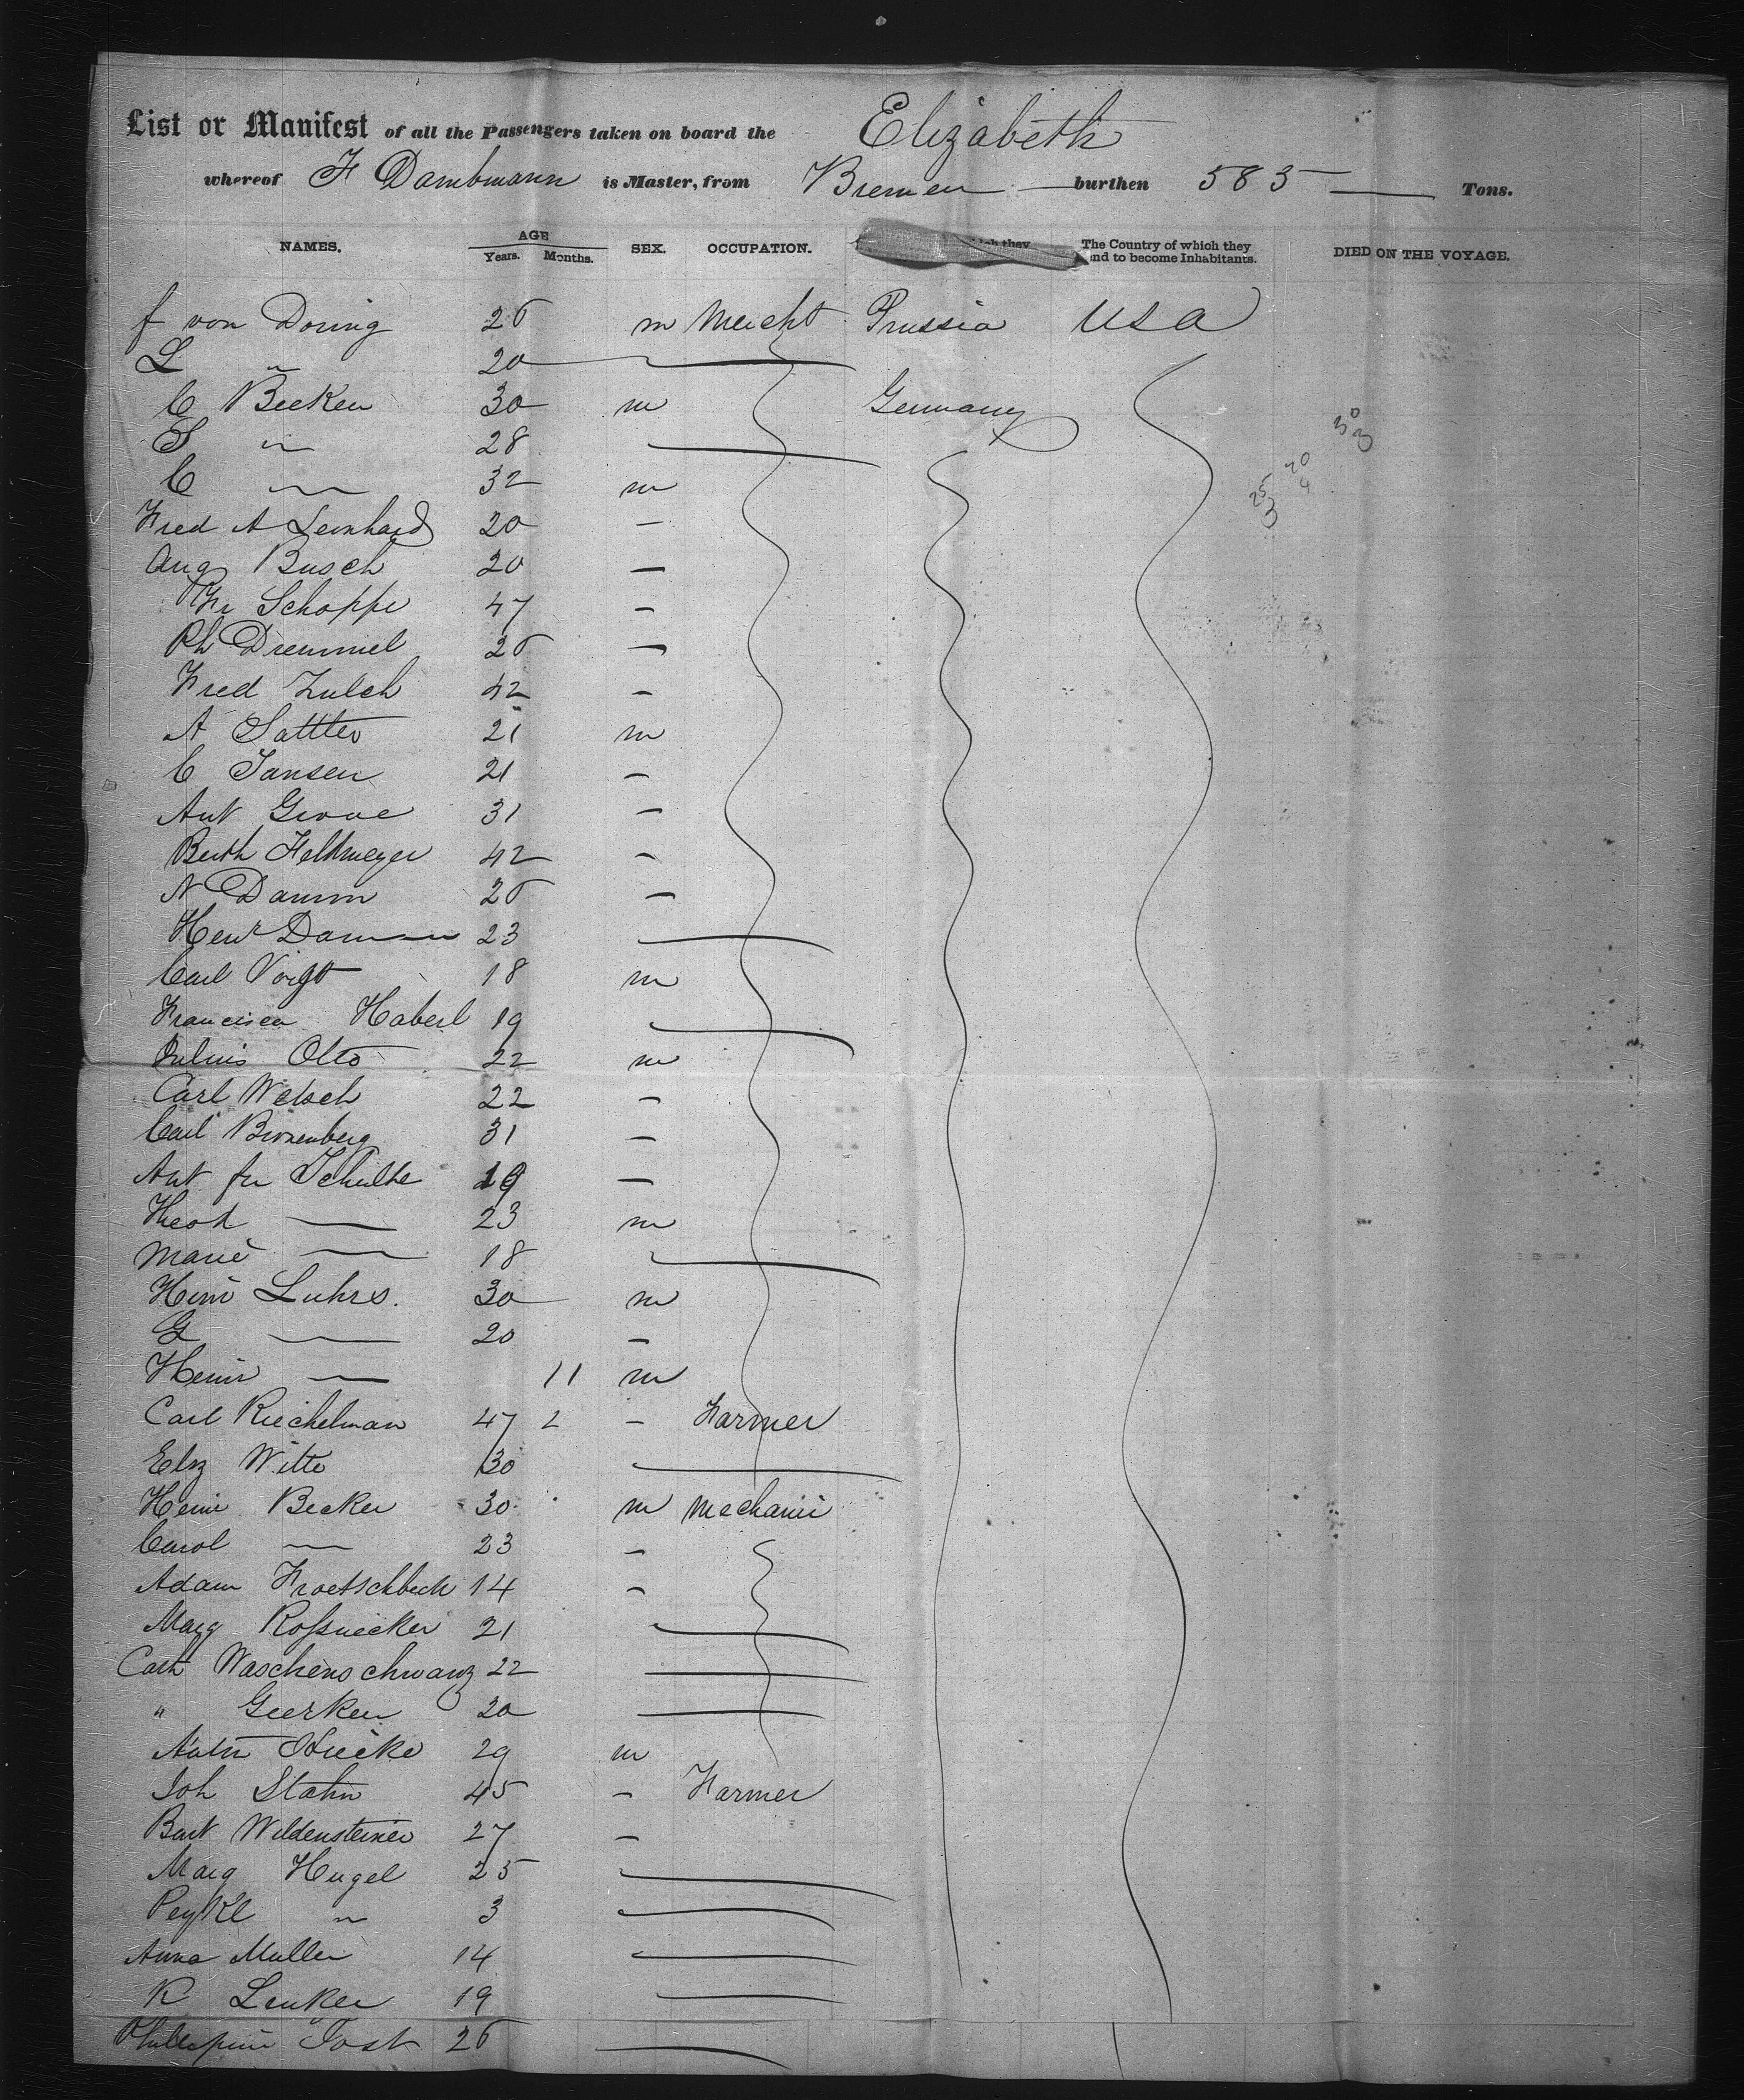 List or Manifest of all the Passengers taken on board the Elizabeth
whereof F Dambmann is Master, from Bremen burthen 585 Tons.
NAMES. AGE Years. Months. SEX. OCCUPATION. which they The Country of which they end to become Inhabitants. DIED ON THE VOYAGE.
f von Doring 26 m Mercht Prussia USA
L " 20
C Becken 30 m Germany
S " 28
C — 32 m
Fred A Leonhard 20 -
Aug Busch 20 -
Fr Schoppe 47 -
Ph Dremmel 26 -
Fred Zulch 42 -
A Sattler 21 m
C Jansen 21 -
Ant Grove 31 -
Berth Feldmeyer 42 -
N Damm 26 -
Henr Damm 23
Carl Voigt 18 m
Francisca Haberl 19
Julius Otto 22 m
Carl Welsch 22 -
Carl Bronenberg 31 -
Ant fr Schulte 19 -
Theod — 23 m
Marie — 18
Heinr Luhrs. 30 m
G — 20 -
Heinr — 11 m
Carl Riechelman 47 2 - Farmer
Elsz Witte 30
Heinr Becker 30 m mechanic
Carol — 23 -
Adam Froetschbeck 14 -
Marg Roßnecker 21
Cath Waschenschwanz 22
" Geerken 20
29 m
Joh Stahn 45 - Farmer
Bart Wildensteiner 27 -
Marg Hugel 25
" 3
Anna Muller 14
K Lenker 19
Jost 26
30
3
20
4
25
3